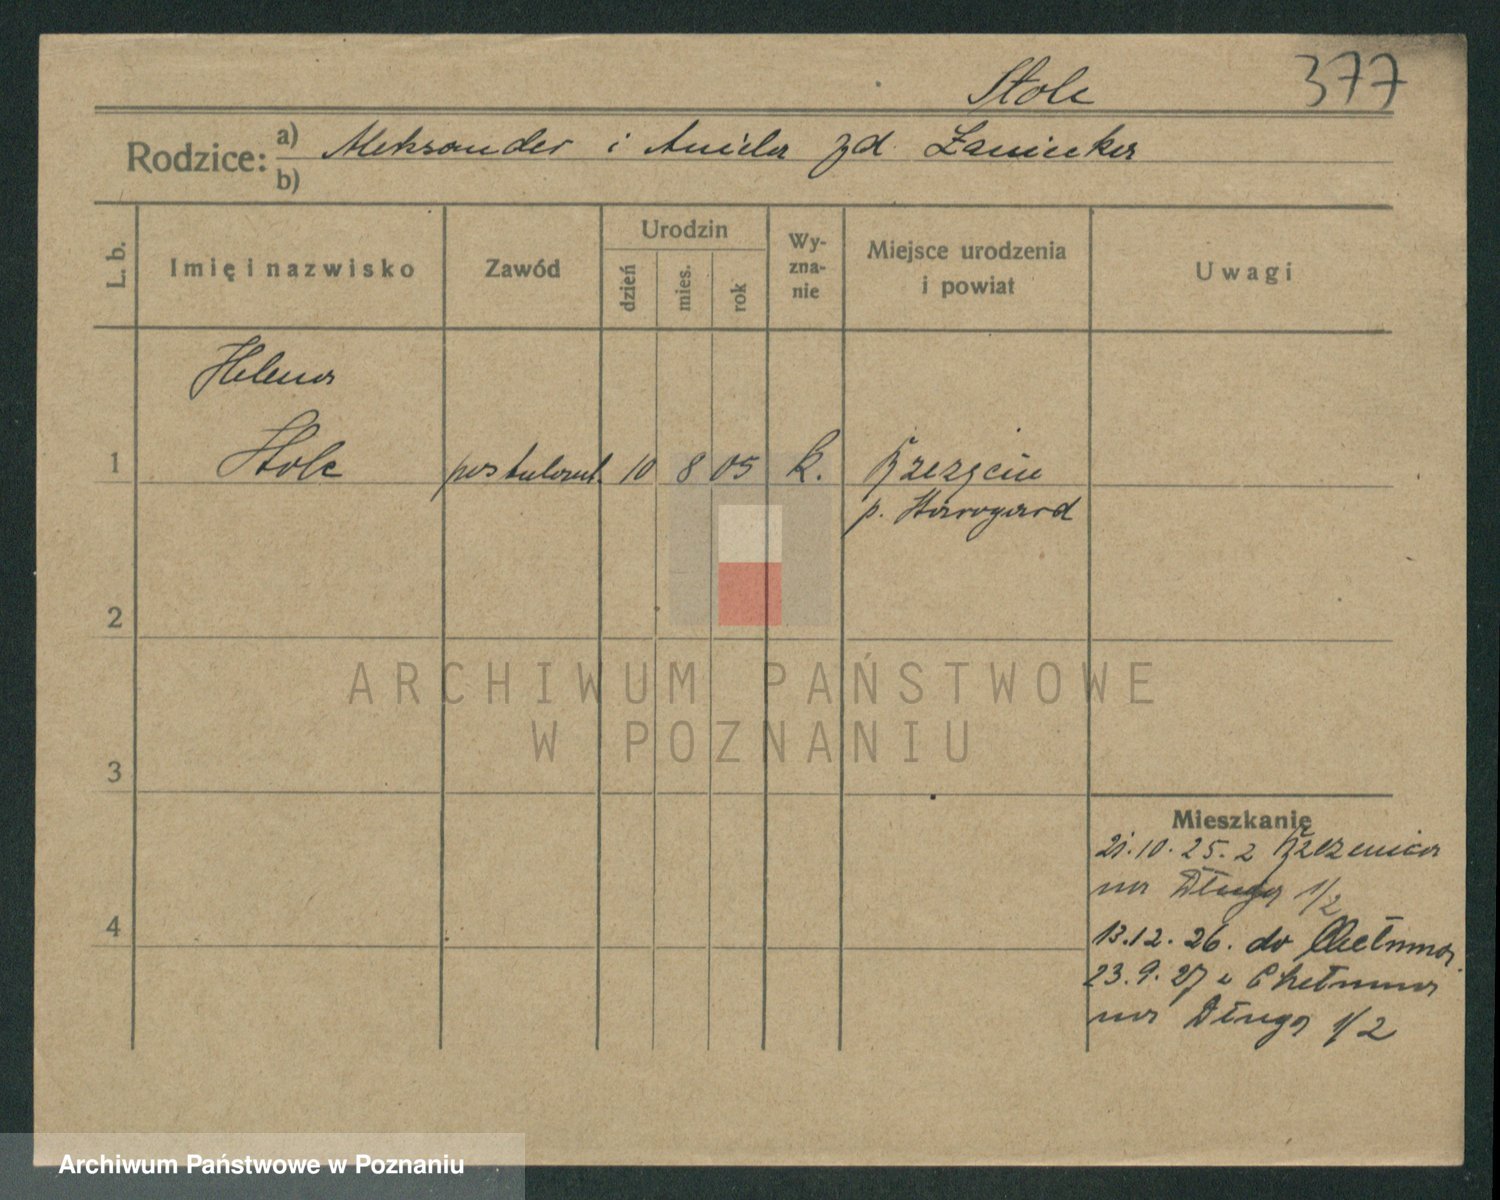 Stolc
377
Rodzice: a) Aleksander i Aniela zd. Zaniecka
b)
L. b.
Imię i nazwisko
Zawód
Urodzin
dzień
mies.
rok
Wy-
zna-
nie
Miejsce urodzenia
i powiat
Uwagi
Helena
1 Stolc postulant. 10 8 05 k.
p. Starogard
2
ARCHIWUM PAŃSTWOWE
W POZNANIU
3
Mieszkanie
21.10.25. z
na Długa 1/2
4
13.12.26. do Chełmna
23.9.27 z Chełmna
na Długa 1/2
Archiwum Państwowe w Poznaniu